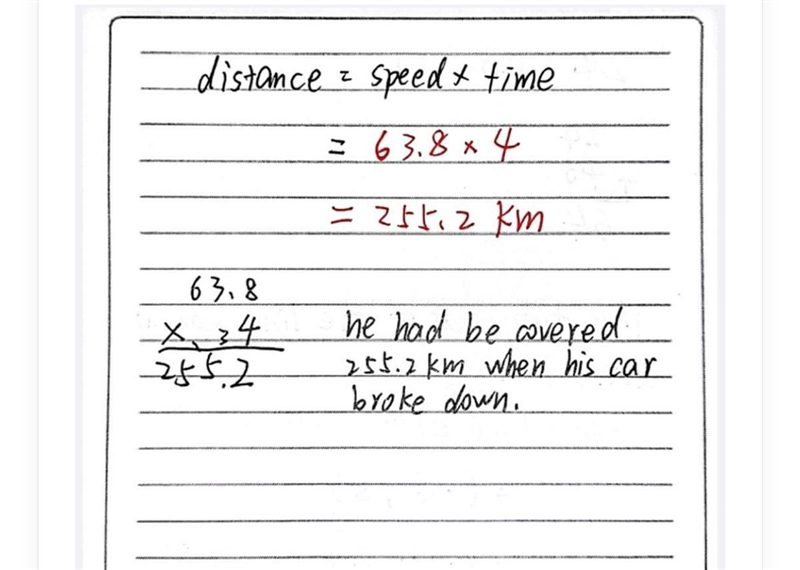 distance = speed × time
= 63.8 × 4
= 255.2 km
63.8
× 34
255.2
he had be covered
255.2 km when his car
broke down.